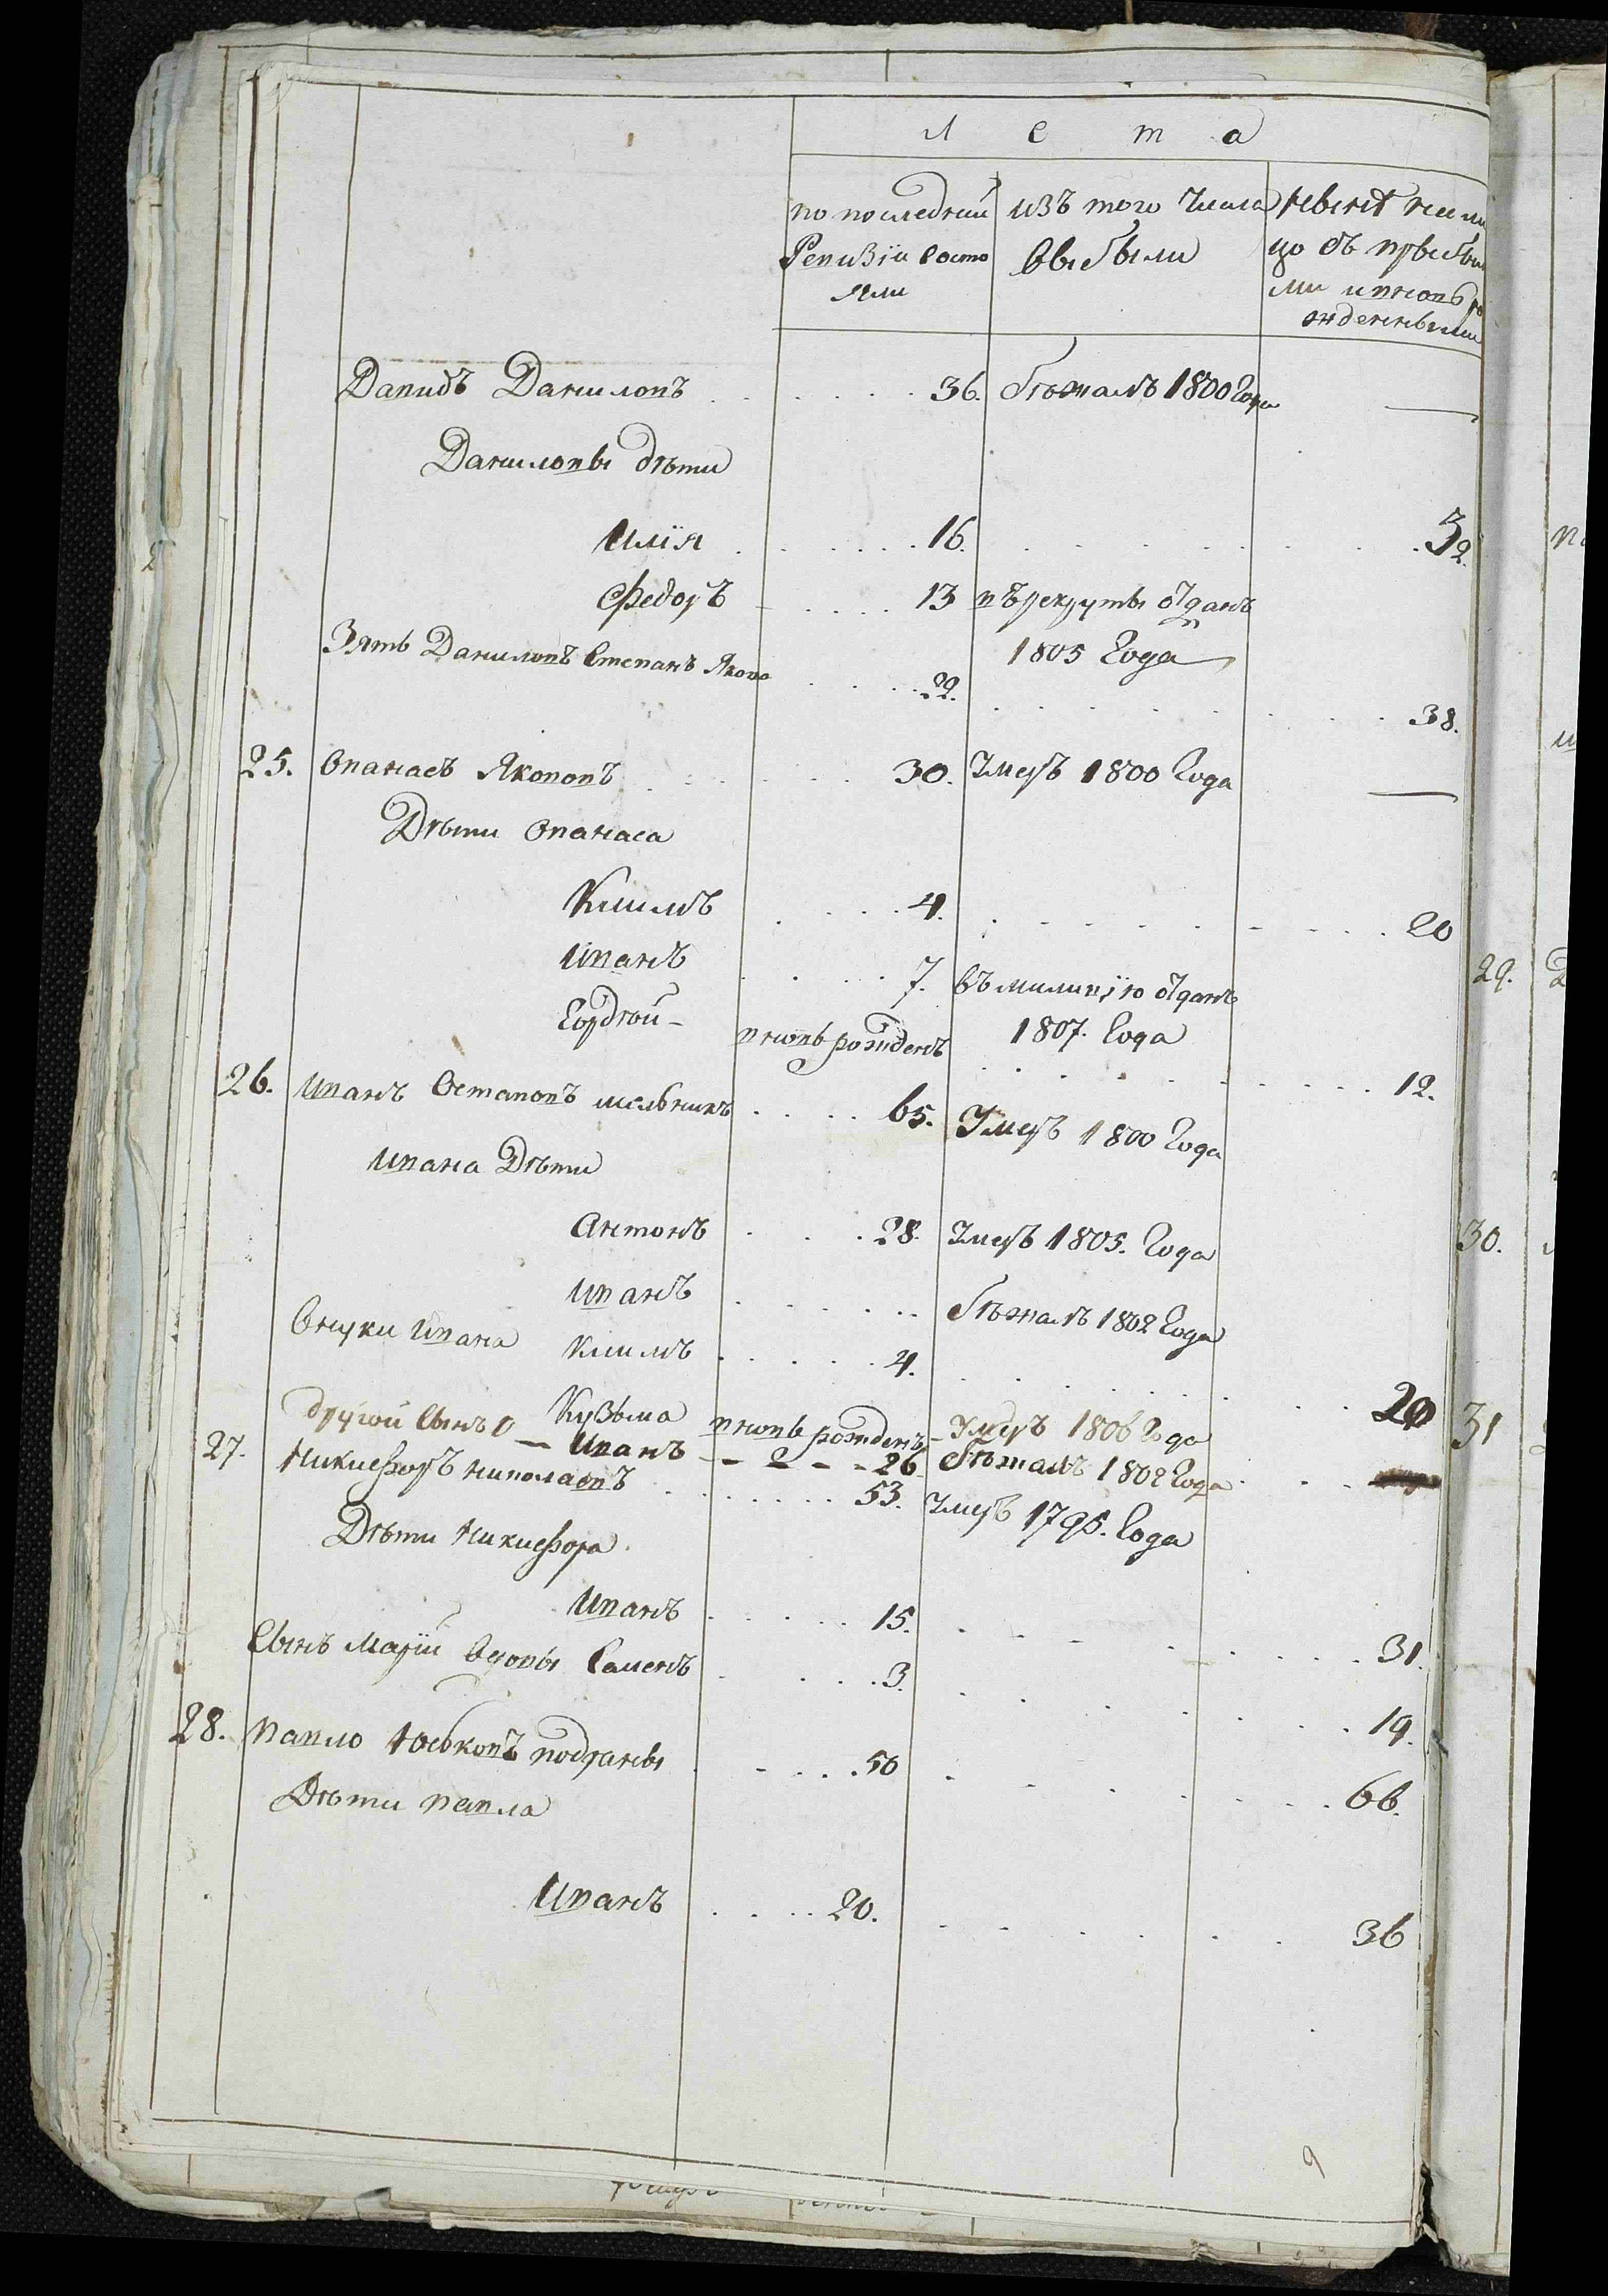 Лета
по последней изъ того числа ныне нали
Ревизiи состо выбыли цо съ прибы
яли ми и вновь ро
жденными
Давидъ Даниловъ 36. бѣжалъ 1800 Года —
Даниловы дѣти
Илiя 16. 32.
Федоръ 13 въ рекруты отданъ
1805 Года
Зять Даниловъ Степанъ Яково 22. 38.
25. Опанасъ Якововъ 30. Умеръ 1800 Года —
Дѣти Опанаса
Климъ 4. 20
Иванъ 7. въ милицiю отданъ
1807. Года
Гордѣй - вновь рожденъ 12.
26. Иванъ Остаповъ мельникъ 65. Умеръ 1800 Года
Ивана Дѣти
Антонъ 28. Умеръ 1805. Года
Иванъ бѣжалъ 1802 Года
Внуки Ивана Климъ 4. 20
Кузьма вновь рожденъ - Умеръ 1806 Года
другой Сынъ — Иванъ 26 бѣжалъ 1802 Года
27. Никифоръ Николаевъ 53. Умеръ 1795. Года
Дѣти Никифора
Иванъ 15. 31.
Сынъ Марiи Семенъ 3. 19.
28. Павло Юськовъ 50 66.
Дѣти Павла
Иванъ 20. 36
9
29.
30.
31